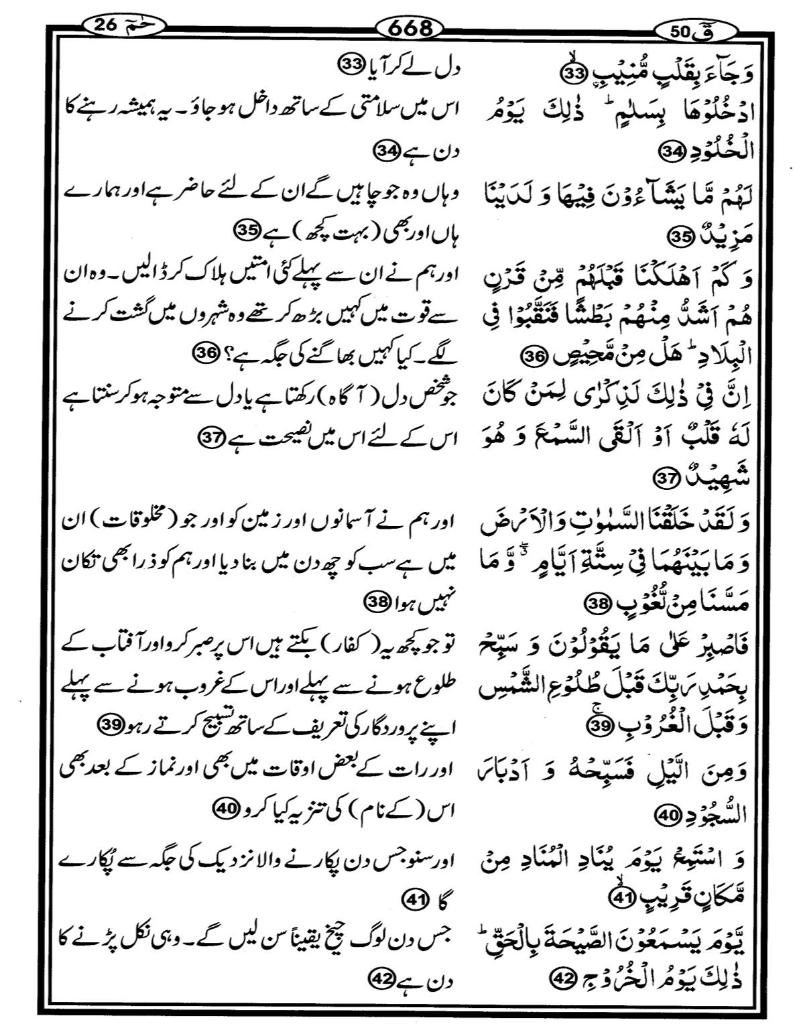 حٰمٓ 26
668
قٓ 50
وَ جَآءَ بِقَلْبٍ مُّنِیْبِۙ ﴿33﴾
ادْخُلُوْهَا بِسَلٰمٍ ؕ ذٰلِكَ یَوْمُ
الْخُلُوْدِ ﴿34﴾
لَهُمْ مَّا یَشَآءُوْنَ فِیْهَا وَ لَدَیْنَا
مَزِیْدٌ ﴿35﴾
وَ كَمْ اَهْلَكْنَا قَبْلَهُمْ مِّنْ قَرْنٍ
هُمْ اَشَدُّ مِنْهُمْ بَطْشًا فَنَقَّبُوْا فِی
الْبِلَادِ ؕ هَلْ مِنْ مَّحِیْصٍ ﴿36﴾
اِنَّ فِیْ ذٰلِكَ لَذِكْرٰی لِمَنْ كَانَ
لَهٗ قَلْبٌ اَوْ اَلْقَی السَّمْعَ وَ هُوَ
شَهِیْدٌ ﴿37﴾
وَ لَقَدْ خَلَقْنَا السَّمٰوٰتِ وَ الْاَرْضَ
وَ مَا بَیْنَهُمَا فِیْ سِتَّةِ اَیَّامٍ ۖۗ وَّ مَا
مَسَّنَا مِنْ لُّغُوْبٍ ﴿38﴾
فَاصْبِرْ عَلٰی مَا یَقُوْلُوْنَ وَ سَبِّحْ
بِحَمْدِ رَبِّكَ قَبْلَ طُلُوْعِ الشَّمْسِ
وَ قَبْلَ الْغُرُوْبِۚ ﴿39﴾
وَ مِنَ الَّیْلِ فَسَبِّحْهُ وَ اَدْبَارَ
السُّجُوْدِ ﴿40﴾
وَ اسْتَمِعْ یَوْمَ یُنَادِ الْمُنَادِ مِنْ
مَّكَانٍ قَرِیْبٍۙ ﴿41﴾
یَّوْمَ یَسْمَعُوْنَ الصَّیْحَةَ بِالْحَقِّ ؕ
ذٰلِكَ یَوْمُ الْخُرُوْجِ ﴿42﴾
دل لے کر آیا ﴿33﴾
اس میں سلامتی کے ساتھ داخل ہو جاؤ۔ یہ ہمیشہ رہنے کا
دن ہے ﴿34﴾
وہاں وہ جو چاہیں گے ان کے لئے حاضر ہے اور ہمارے
ہاں اور بھی (بہت کچھ) ہے ﴿35﴾
اور ہم نے ان سے پہلے کئی امتیں ہلاک کر ڈالیں۔ وہ ان
سے قوت میں کہیں بڑھ کر تھے وہ شہروں میں گشت کرنے
لگے۔ کیا کہیں بھاگنے کی جگہ ہے؟ ﴿36﴾
جو شخص دل (آگاہ) رکھتا ہے یا دل سے متوجہ ہو کر سنتا ہے
اس کے لئے اس میں نصیحت ہے ﴿37﴾
اور ہم نے آسمانوں اور زمین کو اور جو (مخلوقات) ان
میں ہے سب کو چھ دن میں بنا دیا اور ہم کو ذرا بھی تکان
نہیں ہوا ﴿38﴾
تو جو کچھ یہ (کفار) بکتے ہیں اس پر صبر کرو اور آفتاب کے
طلوع ہونے سے پہلے اور اس کے غروب ہونے سے پہلے
اپنے پروردگار کی تعریف کے ساتھ تسبیح کرتے رہو ﴿39﴾
اور رات کے بعض اوقات میں بھی اور نماز کے بعد بھی
اس (کے نام) کی تنزیہ کیا کرو ﴿40﴾
اور سنو جس دن پکارنے والا نزدیک کی جگہ سے پُکارے
گا ﴿41﴾
جس دن لوگ چیخ یقیناً سن لیں گے۔ وہی نکل پڑنے کا
دن ہے ﴿42﴾